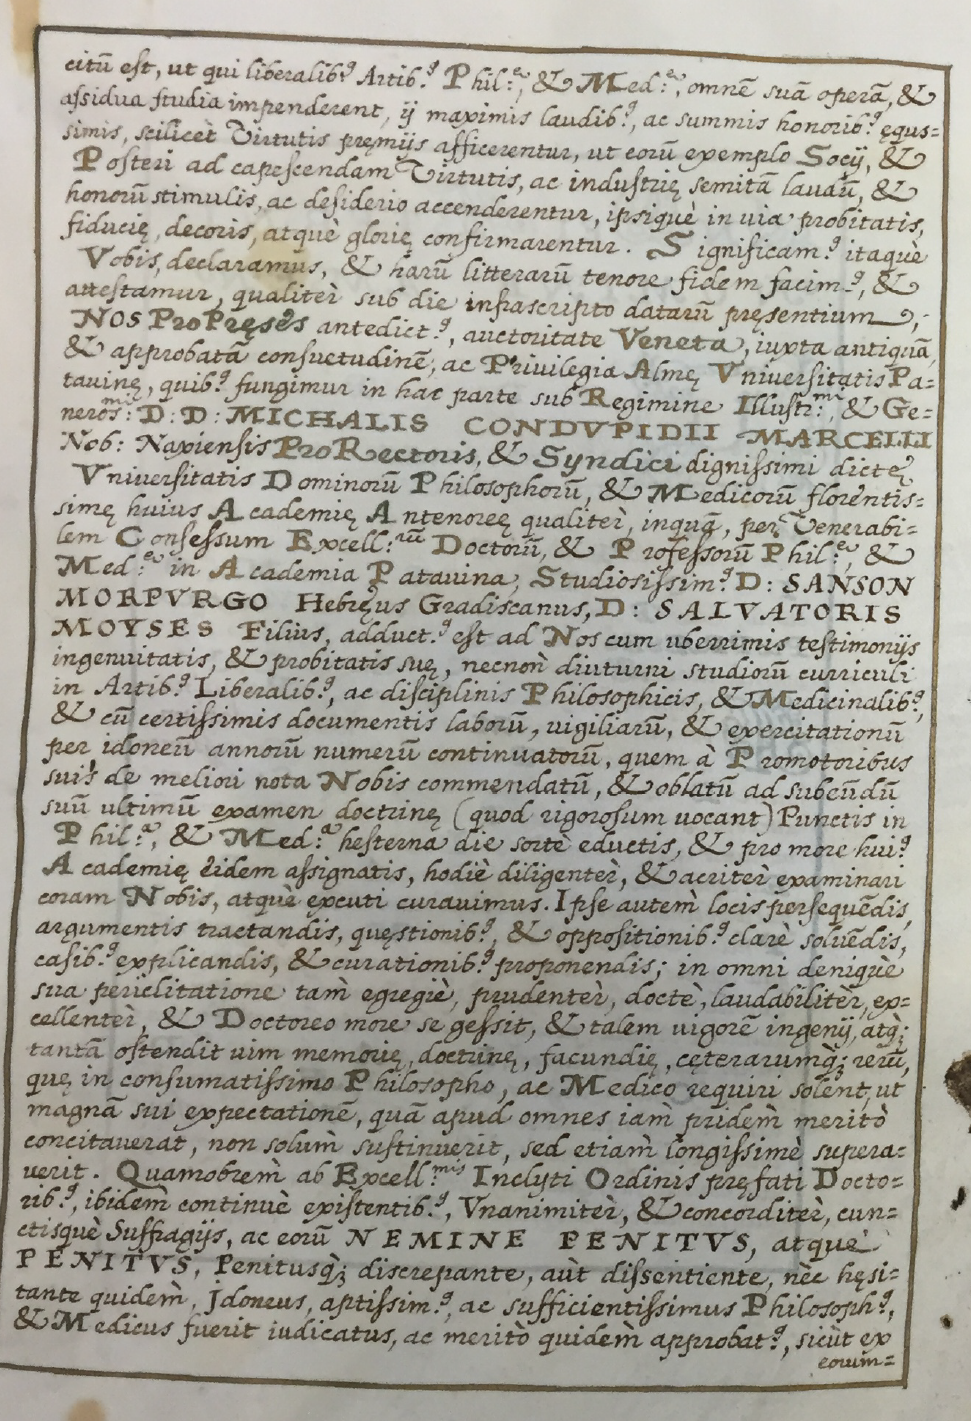 citũ est, ut qui liberalib.⁹ Artib.⁹ Phil.ᵉ, & Med.ᵉ, omnẽ suã operã, &
assidua studia impenderent, ij maximis laudib.⁹, ac summis honorib.⁹ ęqus=
simis, scilicèt Virtutis pręmijs afficerentur, ut eorũ exemplo Socij, &
Posteri ad capescendam Virtutis, ac industrię semitã laudũ, &
honorũ stimulis, ac desiderio accenderentur, ipsiquè in uia probitatis,
fiducię, decoris, atquè glorię confirmarentur. Significam.⁹ itaquè
Vobis, declaramus, & harũ litterarũ tenore fidem facim.⁹, &
attestamur, qualitèr sub die infrascripto datarũ pręsentium,
NOS ProPręses antedict.⁹, auctoritate Veneta, iuxta antiquã,
& approbatã consuetudinẽ, ac Privilegia Almę Vniversitatis Pa=
tauinę, quib.⁹ fungimur in hac parte sub Regimine Illustr.ᵐⁱ, & Ge=
neros.ᵐⁱ: D: D: MICHALIS CONDVPIDII MARCELLI
Nob: Naxiensis ProRectoris, & Syndici dignissimi dictę
Vniversitatis Dominorũ Philosophorũ, & Medicorũ florentis=
simę huius Academię Antenoreę qualitèr, inquã, per Venerabi=
lem Consessum Excell.ʳᵘᵐ Doctorũ, & Professorũ Phil.ᵉ, &
Med.ᵉ in Academia Patauina, Studiosissim.⁹ D: SANSON
MORPVRGO Hebręus Gradiscanus, D: SALVATORIS
MOYSES Filius, adduct.⁹ est ad Nos cum uberrimis testimonijs
ingenuitatis, & probitatis suę, necnoǹ diuturni studiorũ curriculi
in Artib.⁹ Liberalib.⁹, ac disciplinis Philosophicis, & Medicinalib.⁹,
& cũ certissimis documentis laborũ, uigiliarũ, & exercitationũ
per idoneũ annorũ numerũ continuatorũ, quem à Promotoribus
suis de meliori nota Nobis commendatũ, & oblatũ ad subeũdũ
suũ ultimũ examen doctrinę (quod rigorosum uocant) Punctis in
Phil.ᵃ, & Med.ᵃ hesterna die sorte eductis, & pro more hui.⁹
Academię eidem assignatis, hodiè diligentèr, & acritèr examinari
coram Nobis, atquè excuti curauimus. Ipse autem̀ locis persequẽdis,
argumentis tractandis, quęstionib.⁹, & oppositionib.⁹ clarè soluẽdis,
casib.⁹ explicandis, & curationib.⁹ proponendis; in omni deniquè
sua periclitatione tam̀ egregiè, prudentèr, doctè, laudabilitèr, ex=
cellentèr, & Doctoreo more se gessit, & talem uigorẽ ingenij, atq́;
tantã ostendit uim memorię, doctrinę, facundię, cęterarumq́; rerũ,
quę in consumatissimo Philosopho, ac Medico requiri solent, ut
magnã sui expectationẽ, quã apud omnes iam̀ pridem̀ meritò
concitauerat, non solum̀ sustinuerit, sed etiam̀ longissimè supera=
uerit. Quamobrem̀ ab Excell.ᵐⁱˢ Inclyti Ordinis pręfati Docto=
rib.⁹, ibidem̀ continuè existentib.⁹, Vnanimitèr, & concorditèr, cun=
ctisquè Suffragijs, ac eorũ NEMINE PENITVS, atquè
PENITVS, Penitusq́; discrepante, aùt dissentiente, nèc hęsi=
tante quidem̀, Jdoneus, aptissim.⁹, ac sufficientissimus Philosoph.⁹,
& Medicus fuerit iudicatus, ac meritò quidem̀ approbat.⁹, sicùt ex
eorum=